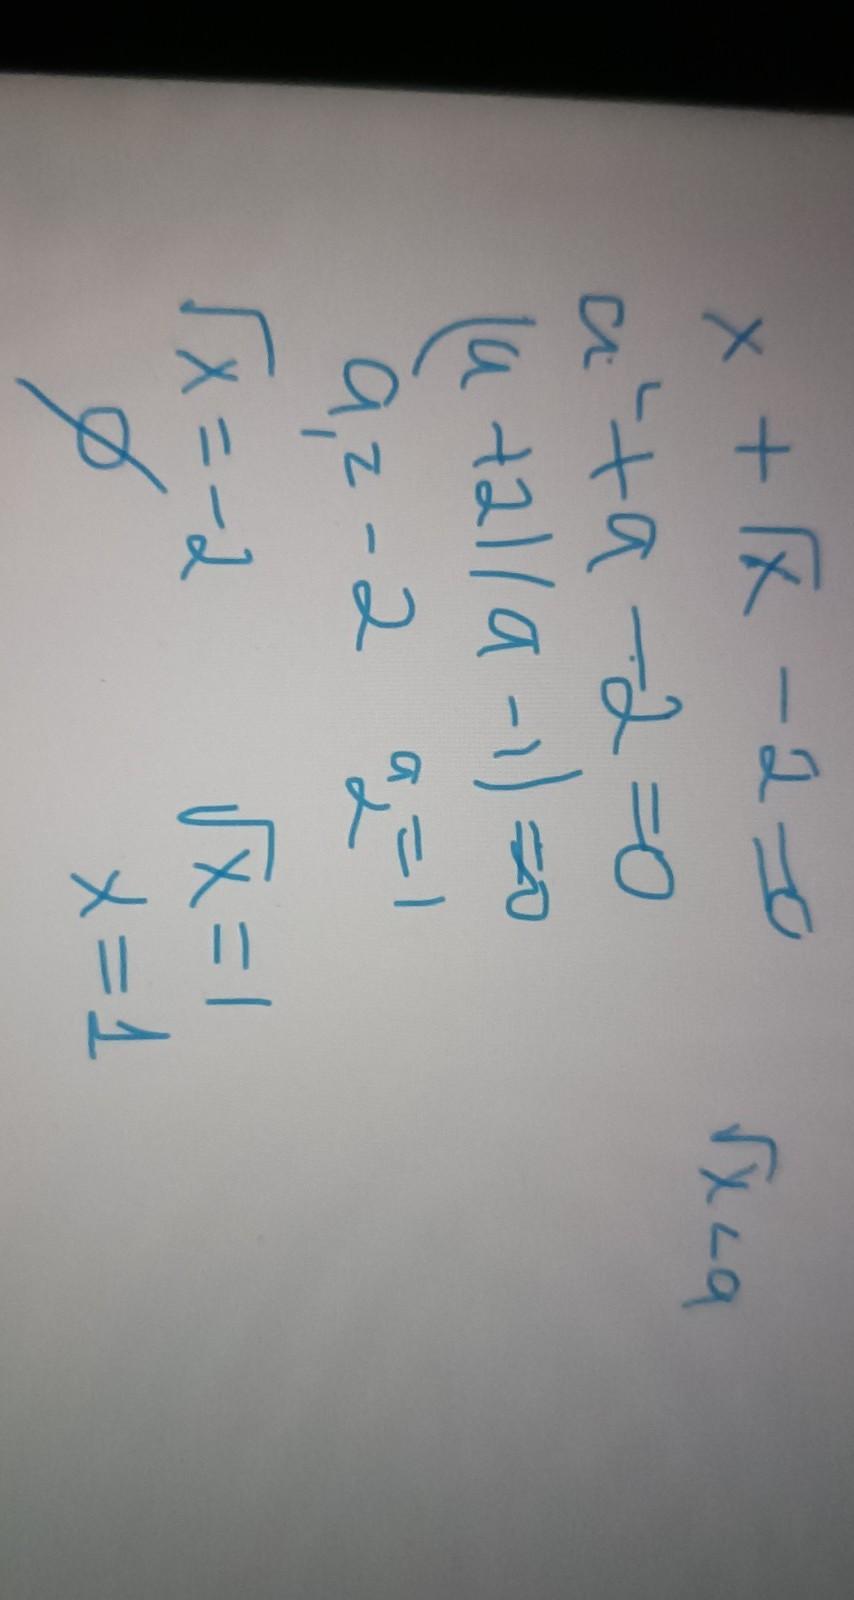 x + √x - 2 = 0 √x = a
a² + a - 2 = 0
(a + 2)(a - 1) = 0
a₁ = -2 a₂ = 1
√x = -2 √x = 1
∅ x = 1